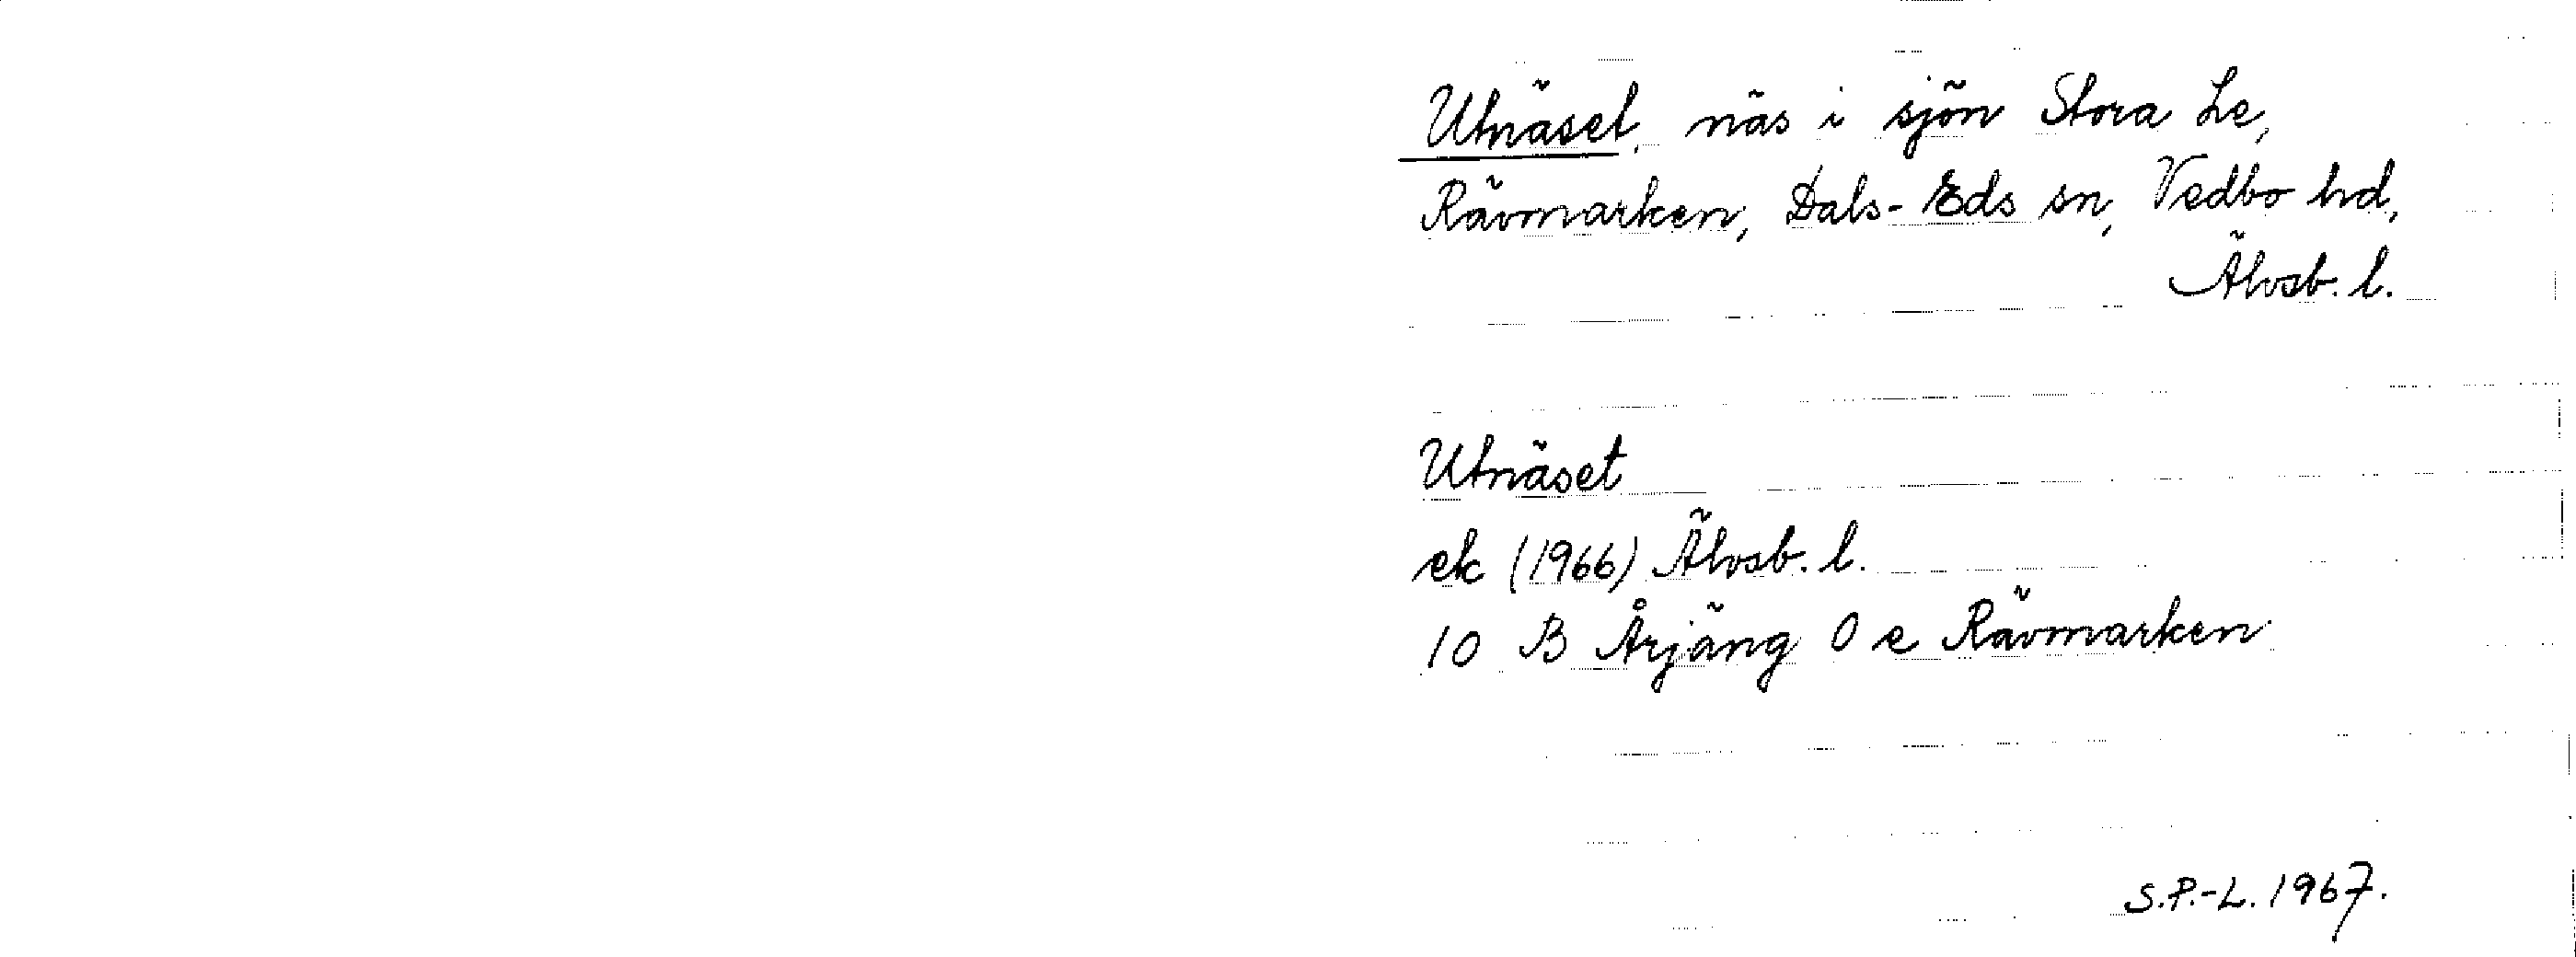 Utnäset, näs i sjön Stora Le,
Rävmarken, Dals-Eds sn, Vedbo hd,
Älvsb. l.
Utnäset
ek (1966) Älvsb. l.
10 B Årjäng 0 e Rävmarken
S.P.-L. 1967.